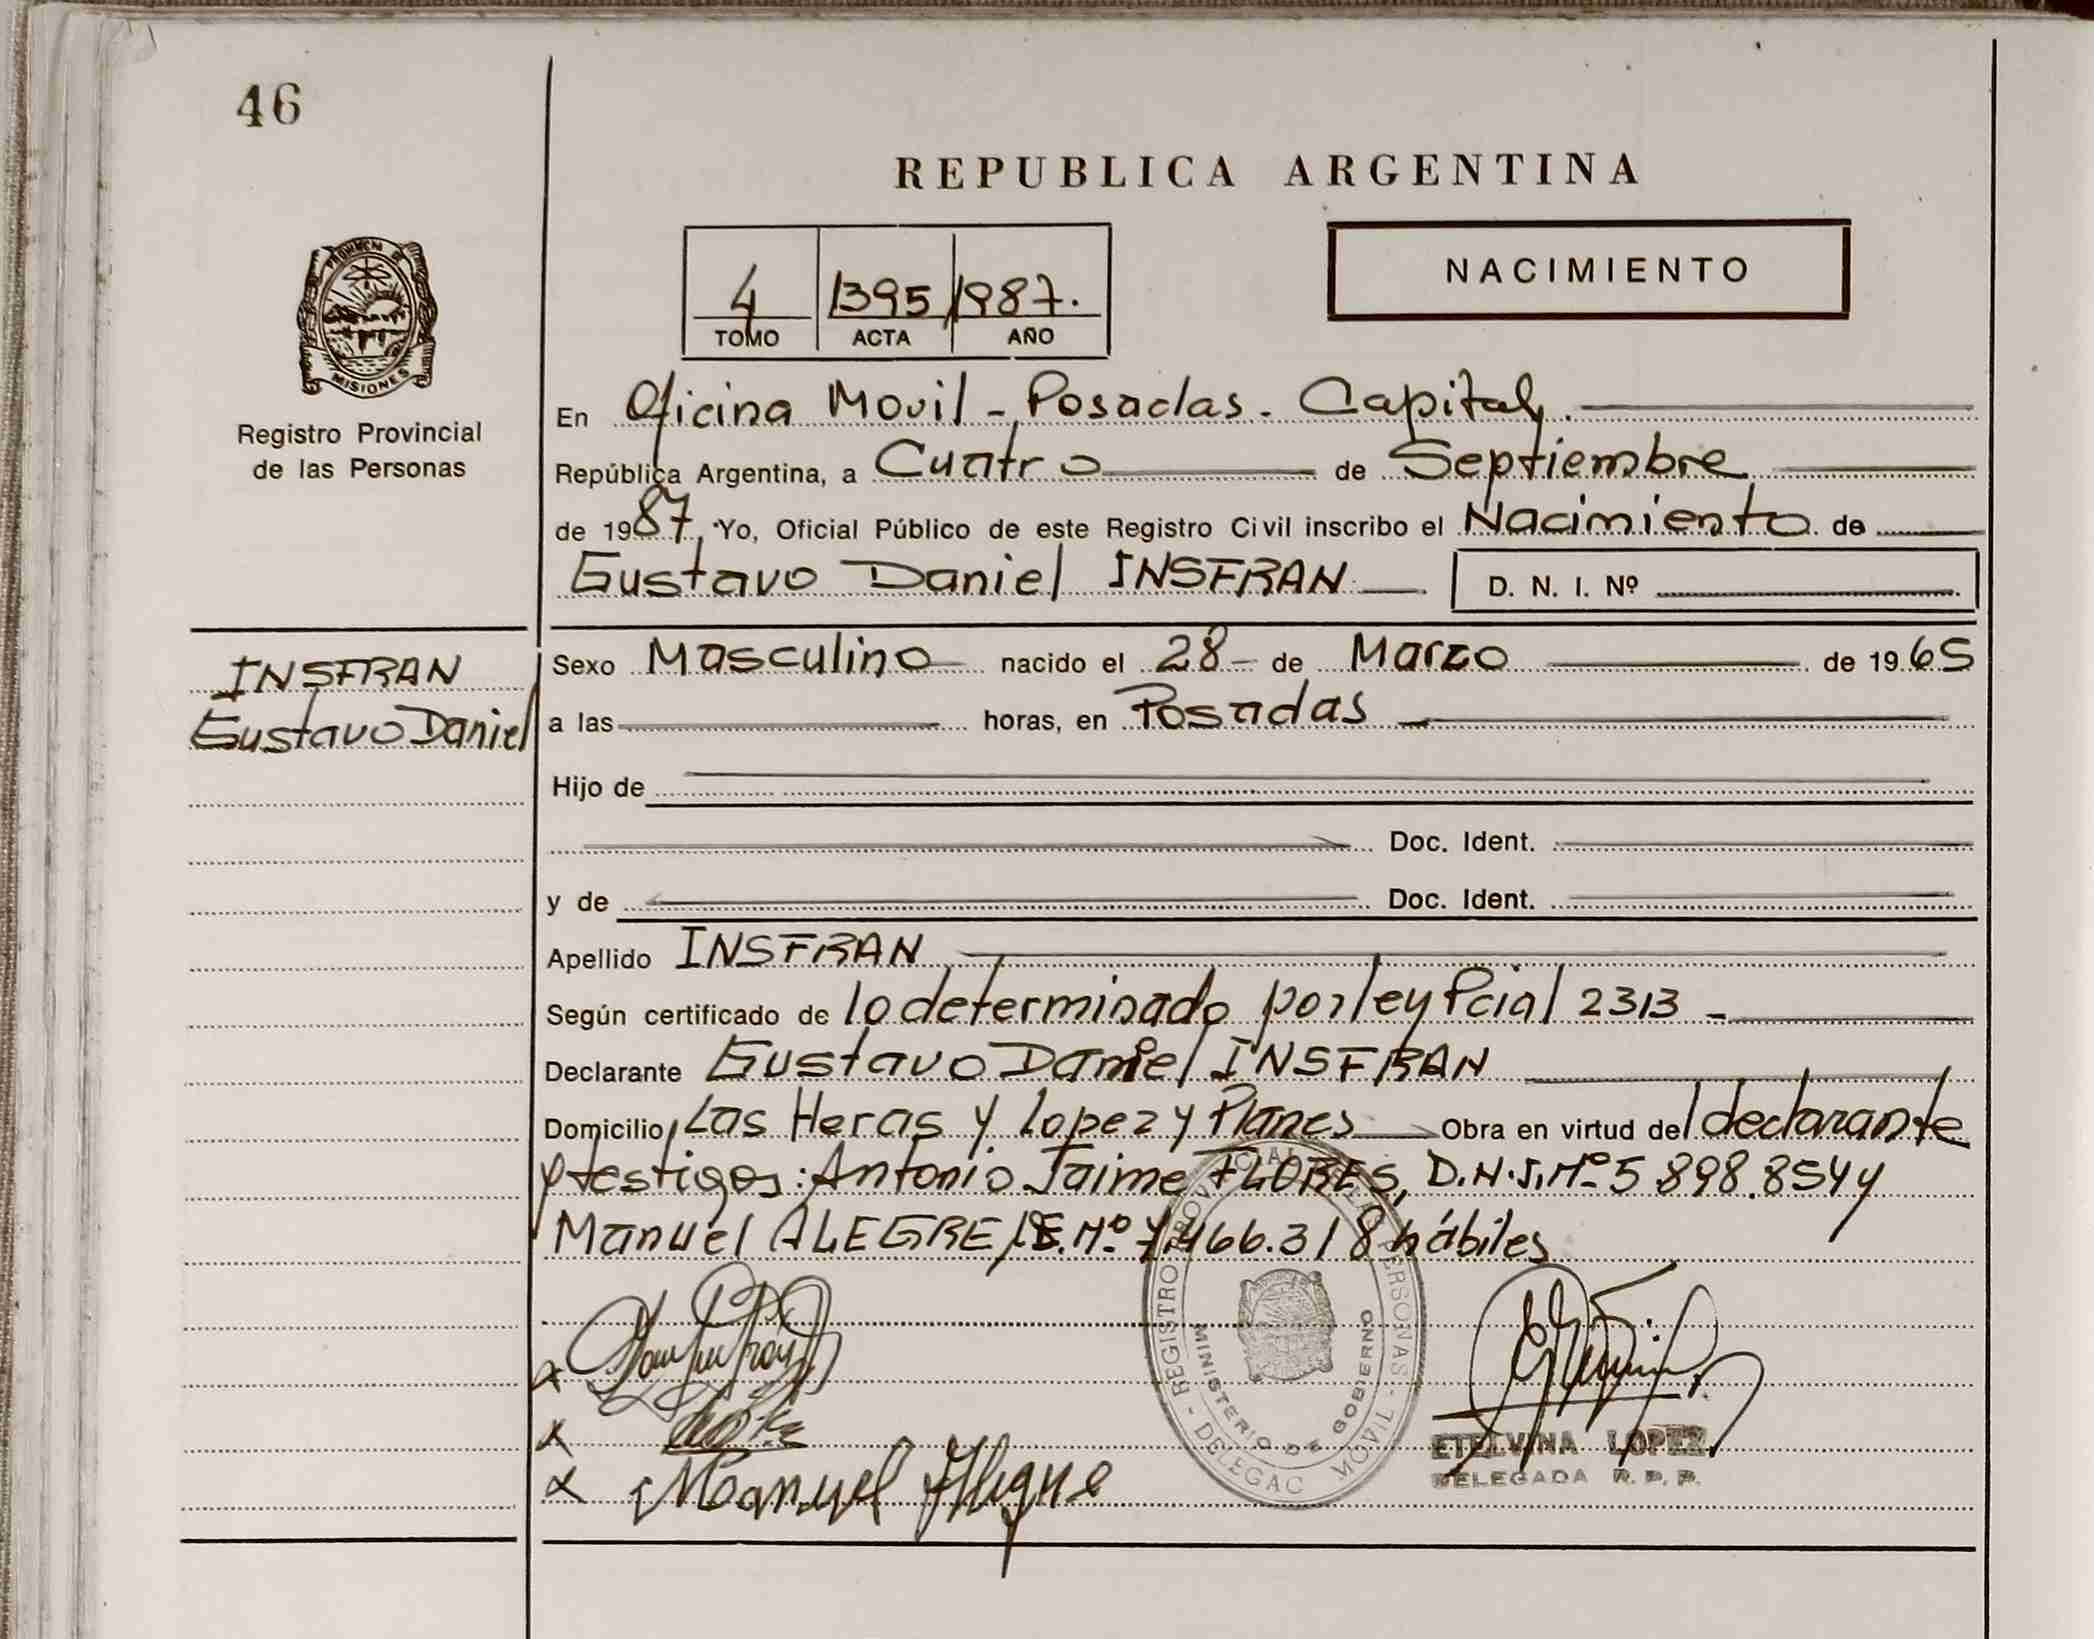 46
REPUBLICA ARGENTINA
PROVINCIA DE
MISIONES
Registro Provincial
de las Personas
4 1395 1987.
TOMO ACTA AÑO
NACIMIENTO
En Oficina Movil - Posadas. Capital.
República Argentina, a Cuatro de Septiembre
de 1987, Yo, Oficial Público de este Registro Civil inscribo el Nacimiento de
Gustavo Daniel INSFRAN D. N. I. Nº
INSFRAN
Gustavo Daniel
Sexo Masculino nacido el 28 - de Marzo de 1965
a las horas, en Posadas
Hijo de
Doc. Ident.
y de Doc. Ident.
Apellido INSFRAN
Según certificado de lo determinado por ley Pcial 2313 -
Declarante Gustavo Daniel INSFRAN
Domicilio Las Heras y Lopez y Planes Obra en virtud del declarante
y testigos: Antonio Jaime FLORES, D.N.I. Nº 5.898.854 y
Manuel ALEGRE, L.E. Nº 7.466.318 hábiles
x
x
x Manuel Alegre
REGISTRO PROVINCIAL DE LAS PERSONAS - DELEGAC MOVIL -
MINISTERIO DE GOBIERNO
ETELVINA LOPEZ
DELEGADA R. P. P.